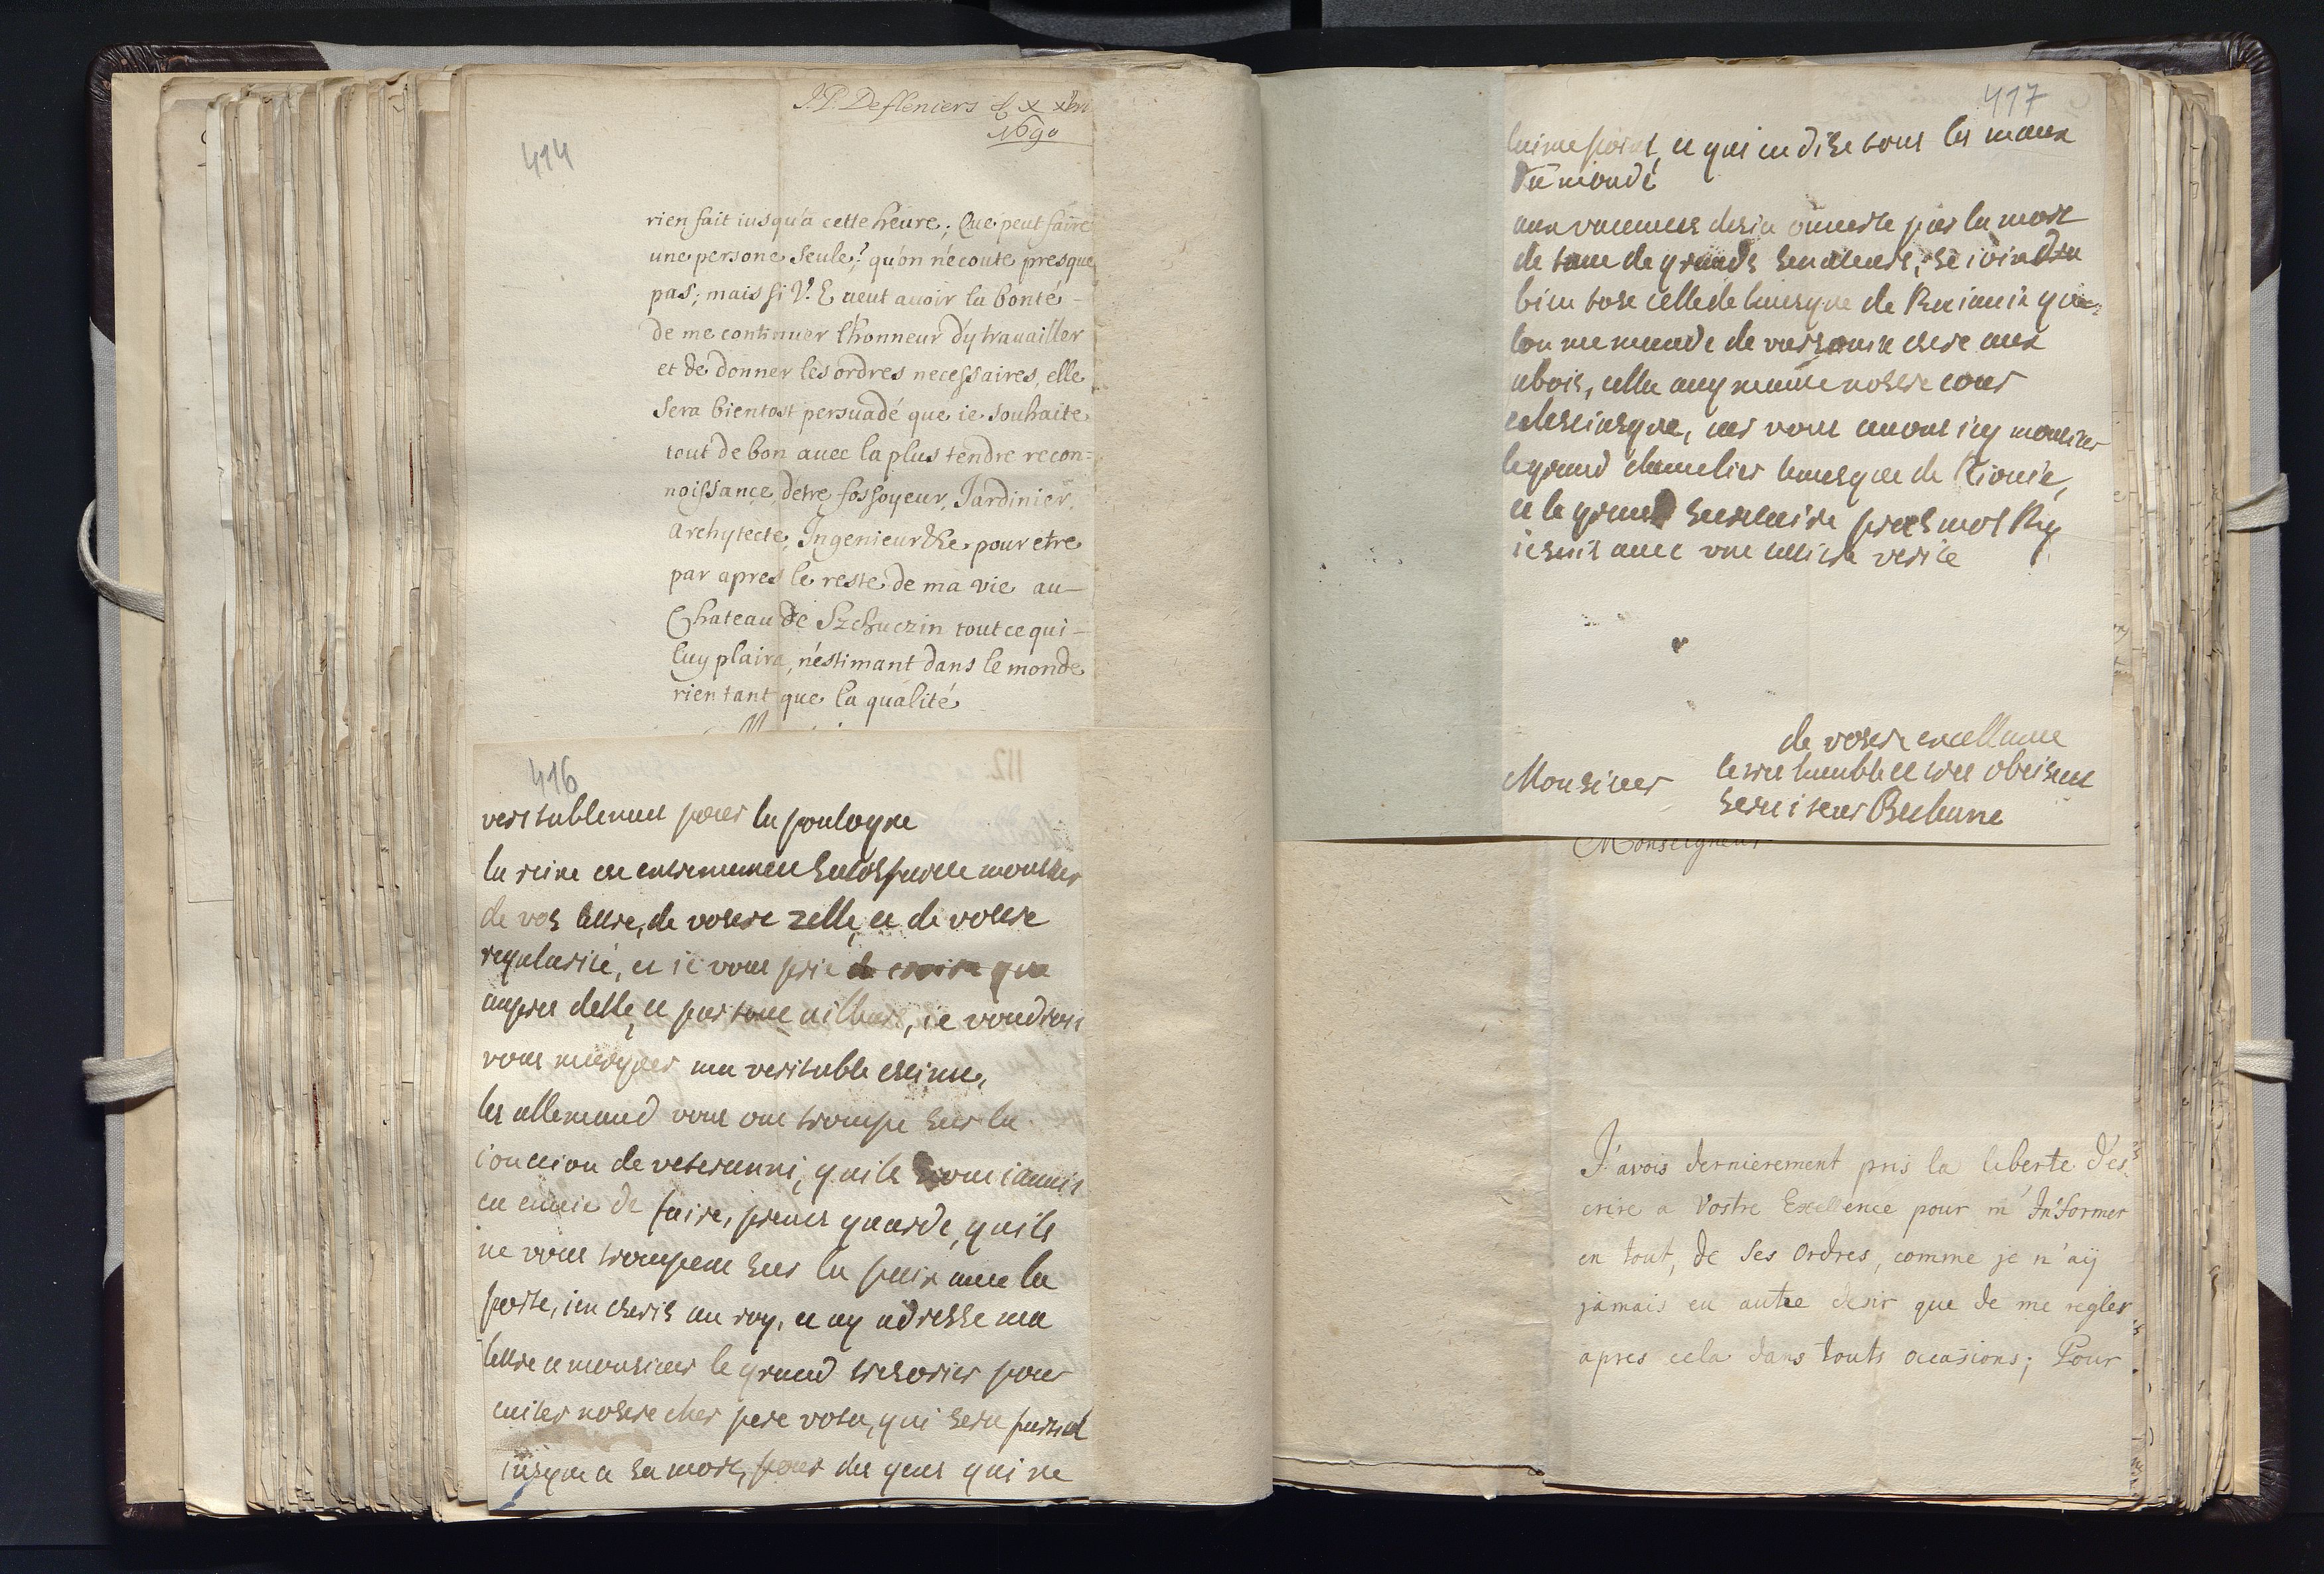 J.P. Defleniers
1690
414
rien fait iusqu'a cette heure; Que peut faire
une persone seule? qu'on n'ecoute presque
pas; mais si V. E veut auoir la bonté
de me continuer l'honneur d'y trauailler
et de donner les ordres necessaires, elle
Sera bientost persuadé que ie souhaite
tout de bon auec la plus tendre recon=
noissance, detre fossoyeur, Jardinier,
Archytecte, Ingenieur &c pour etre
par apres le reste de ma vie au
Chateau de Szchuczin tout ce qui
luy plaira, n'estimant dans le monde
rien tant que la qualité
416
veritablemant pour la poulogne
la reine est satisfaitte monsieur
de vos lettre, de vostre zelle, et de vostre
regularité, et ie vous prie de croire que
aupres delle, et par tout ailleurs, ie voudrois
vous marquer ma veritable estime,
les allemand vous ont trompe sur la
ionction de veteranni, quils nont iamais
eu enuie de faire, prenes guarde, quils
ne vous trompent sur la paix auec la
porte, ien escris au roy, et ay adresse ma
lettre a monsieur le grand tresorier pour
euiter nostre cher pere vota, qui sera
iusque a sa mort, pour des gens qui ne
417
laime point, et qui en dise tous les maux
du monde
aux par la mort
de tant de grands senateurs, se ioindra
bien tost celle de leuesque de que
lon me mande de estre aux
abois, cella augmante nostre cour
nous auons icy monsieur
le grand chancelier leuesque de Kiouie,
et le grand
ie suis auec vne entiere verite
de vostre excellance
Monsieur
le tres humble et tres obeisant
seruiteur Bethune
Monseigneur
J'avois dernierement pris la liberte d'es
crire a Vostre Excellence pour m'Informer
en tout, de Ses Ordres, comme je n'aÿ
jamais eu autre desir que de me regler
apres cela dans touts occasions; Pour